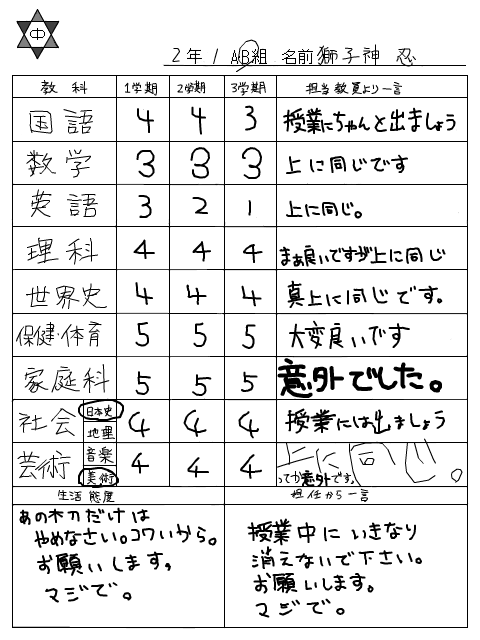 中
2年 1 AB組 名前 獅子神 忍
教科 1学期 2学期 3学期 担当教員より一言
国語 4 4 3 授業にちゃんと出ましょう
数学 3 3 3 上に同じです
英語 3 2 1 上に同じ。
理科 4 4 4 まぁ良いですが上に同じ
世界史 4 4 4 真上に同じです。
保健・体育 5 5 5 大変良いです
家庭科 5 5 5 意外でした。
社会 日本史 地理 4 4 4 授業には出ましょう
芸術 音楽 美術 4 4 4 上に同じ。
ってか意外です。
生活態度 担任から一言
あの木刀だけは
やめなさい。コワいから。
お願いします。
マジで。
授業中にいきなり
消えないで下さい。
お願いします。
マジで。